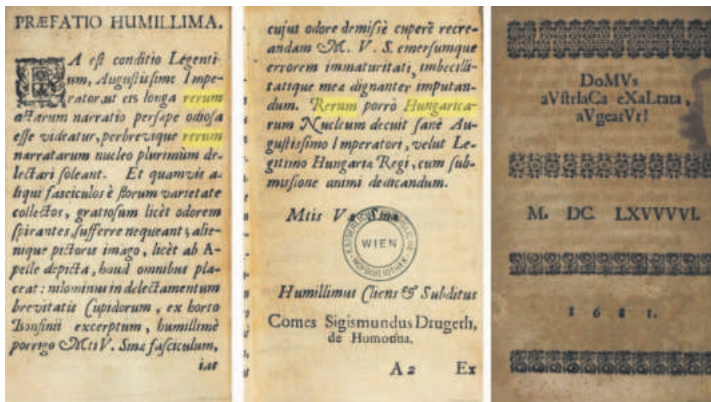 PRÆFATIO HUMILLIMA.
EA est conditio Legenti-
um, Augustissime Impe-
rator, ut eis longa rerum
actarum narratio persæpe odiosa
esse videatur, perbrevique rerum
narratarum nucleo plurimùm de-
lectari soleant. Et quamvis a-
liqui fasciculos è florum varietate
collectos, gratiosum licèt odorem
spirantes, sufferre nequeant; alie-
nique pictoris imago, licèt ab A-
pelle depicta, haud omnibus pla-
ceat: in delectamentum
brevitatis Cupidorum, ex horto
Bonfinii excerptum, humillimè
porrigo MtiV. Smæ fasciculum,
cujus odore demissè cuperē recre-
andam M. V. S. emersumque
errorem immaturitati, imbecilli-
tatique meæ dignanter imputan-
dum. Rerum porrò Hungarica-
rum Nucleum decuit sanè Au-
gustissimo Imperatori, velut Le-
gitimo Hungariæ Regi, cum sub-
missione animi dedicandum.
Mtis Smæ
WIEN
Humillimus Cliens & Subditus
Comes Sigismundus Drugeth,
de Homonna.
A 2 Ex
DoMVs
aVstrIaCa eXaLtata,
aVgeatVr!
M. DC. LXVVVVI.
1681.